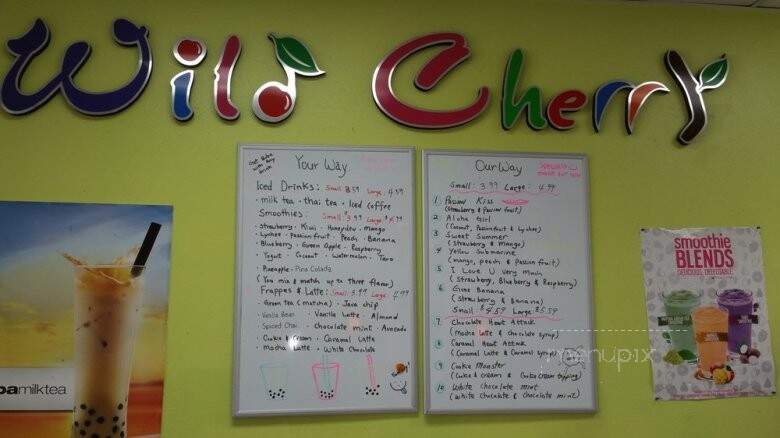 Wild Cherry
Your Way
Get Boba
with Any
Drink
Iced Drinks: Small Large 4.59
• milk tea • thai tea • Iced coffee
Smoothies: Small Large
Strawberry • Kiwi • Honeydew • Mango
Lychee • Passion Fruit • Peach • Banana
Blueberry • Green Apple • Raspberry
Yogurt • Coconut • Watermelon • Taro
• Pineapple • Pina Colada
(You mix & match up to three flavor)
Frappes & Latte: Small: 3.99 Large 4.99
• Green tea (matcha) • Java chip
Vanilla Bean • Vanilla Latte • Almond
Spiced Chai • chocolate mint • Avocado
Cookie & Cream • Caramel Latte
Mocha Latte • White Chocolate
Our Way
Small: 3.99 Large: 4.99
1 Passion Kiss
(Strawberry & Passion fruit)
2 Aloha Girl
(Coconut, Passion fruit & Lychee)
3 Sweet Summer
(Strawberry & Mango)
4 Yellow Submarine
(mango, peach & passion fruit)
5 I Love U very Much
(Strawberry, Blueberry & Raspberry)
6 Banana
(Strawberry & Banana)
Small $4.59 Large $5.59
7 Chocolate Heart Attack
(Mocha Latte & Chocolate syrup)
8 Caramel Heart Attack
(Caramel Latte & Caramel syrup)
9 Cookie Monster
(Cookie & cream & Cookie cream topping)
10 White Chocolate mint
(White Chocolate & Chocolate mint)
oamilktea
smoothie
BLENDS
DELICIOUS, DELECTABLE
menupix